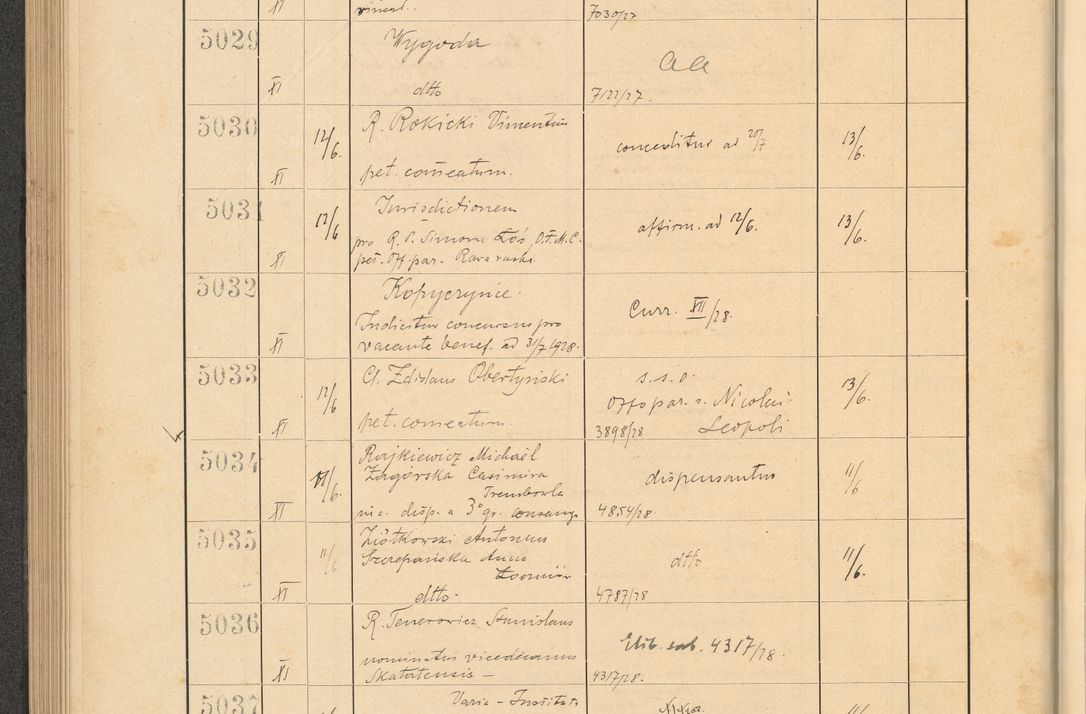 XI
7030/27
5029 Wygoda
aa
XI dtto 7122/27.
5030 12/6. R. Rokicki Vimentius
conceditur ad 20/7 13/6.
XI pet. comeatum.
5031 12/6 Jurisdictionem
affirm. ad 12/6. 13/6.
pro R. P. Simone Łoś, O.F.M.C.
XI pet. Off. par. Rava ruska
5032 Kopyczyńce.
Curr. XII/28.
Indicitur concursus pro
XI vacante benef. ad 31/7 1928.
5033 12/6 Cl. Zdislaus Obertyński
s.s.o. 13/6.
Offo par. s. Nicolai
XI pet. comeatum. 3898/28 Leopoli
5034 11/6. Rajkiewicz Michaël
Zagórska Casimira
dispensantur 11/6
Trembowla
XI disp. a 3° gr. consang. 4854/28
5035 11/6 Ziółkowski Antonius
Szczepańska Anna
dtto 11/6.
XI dtto. 4787/28
5036 R. Tenerowicz Stanislaus
Elib. sub. 4317/28.
nominatus vicedecanus
XI Skałatensis — 4317/28.
5037 Varia - Instituta